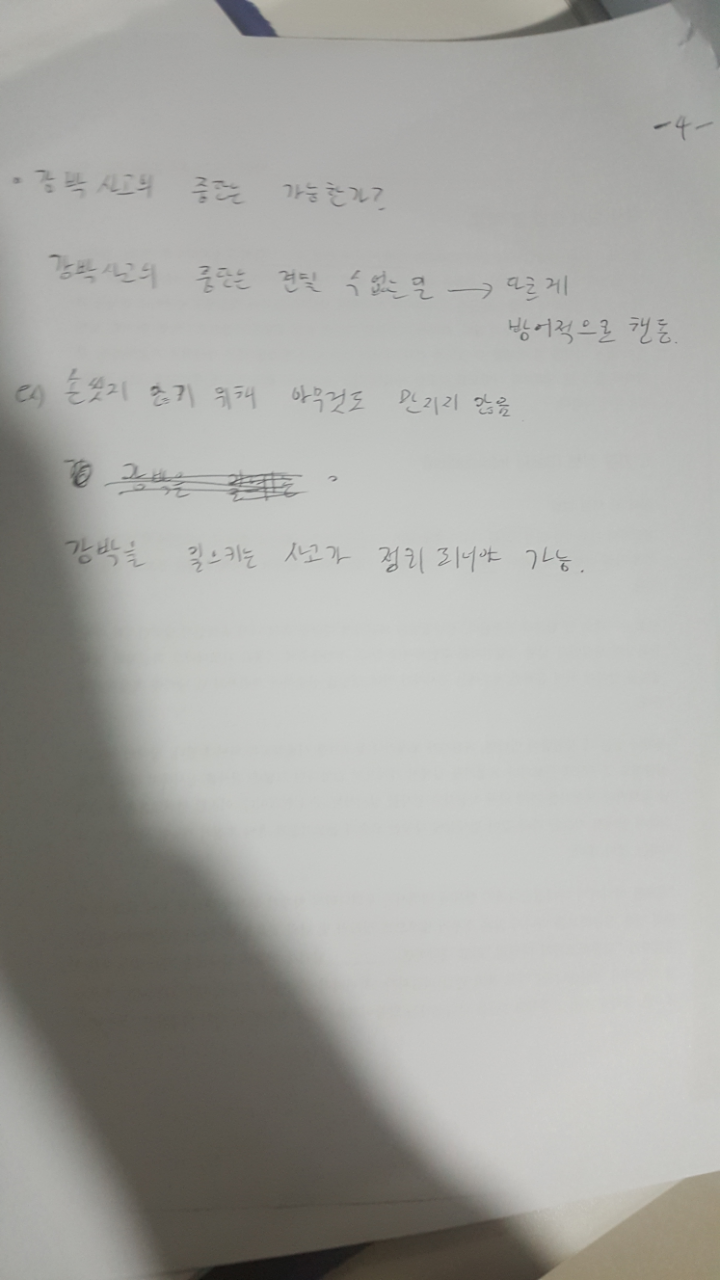 -4-
• 강박사고의 중단은 가능한가?
강박사고의 중단은 견딜 수 없는 일 → 모르게
방어적으로 행동.
ex) 손씻지 않기 위해 아무것도 만지지 않음
강박을
강박을 일으키는 사고가 정리되어야 가능.